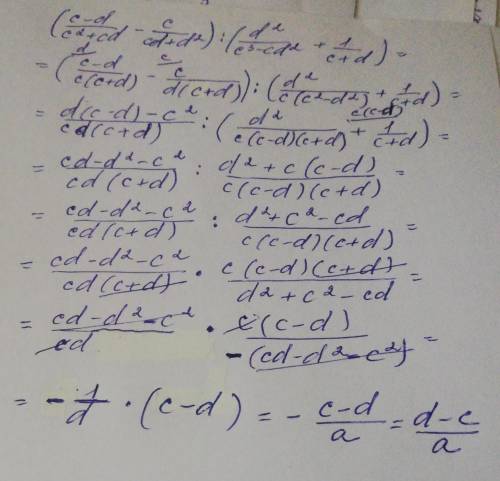 (c-d/c²+cd - c/cd+d²) : (d²/c³-cd² + 1/c+d) =
= (c-d/c(c+d) - c/d(c+d)) : (d²/c(c²-d²) + 1/c+d) =
= d(c-d)-c²/cd(c+d) : (d²/c(c-d)(c+d) + 1/c+d) =
= cd-d²-c²/cd(c+d) : d²+c(c-d)/c(c-d)(c+d) =
= cd-d²-c²/cd(c+d) : d²+c²-cd/c(c-d)(c+d) =
= cd-d²-c²/cd(c+d) · c(c-d)(c+d)/d²+c²-cd =
= cd-d²-c²/cd · c(c-d)/-(cd-d²-c²) =
= -1/d · (c-d) = - c-d/a = d-c/a